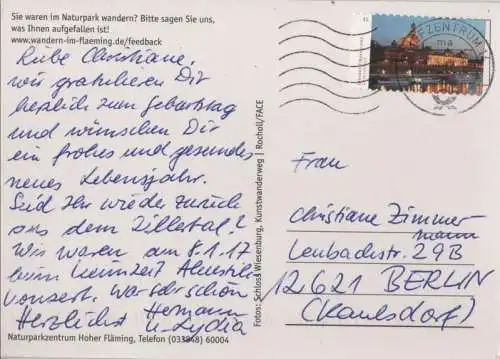 Sie waren im Naturpark wandern? Bitte sagen Sie uns,
was Ihnen aufgefallen ist!
www.wandern-im-flaeming.de/feedback
Liebe Christiane,
wir gratulieren Dir
herzlich zum Geburtstag
und wünschen Dir
ein frohes und gesundes
neues Lebensjahr.
Seid Ihr wieder zurück
aus dem Zillertal?
Wir waren am 8.1.17
beim
Konzert. War sehr schön
Herzlichst Hermann
u. Lydia
Naturparkzentrum Hoher Fläming, Telefon (033848) 60004
Fotos: Schloss Wiesenburg, Kunstwanderweg | Rocholl/FACE
EFZENTRUM
Frau
Christiane Zimmer-
mann
Lenbachstr. 29B
12621 BERLIN
(Kaulsdorf)